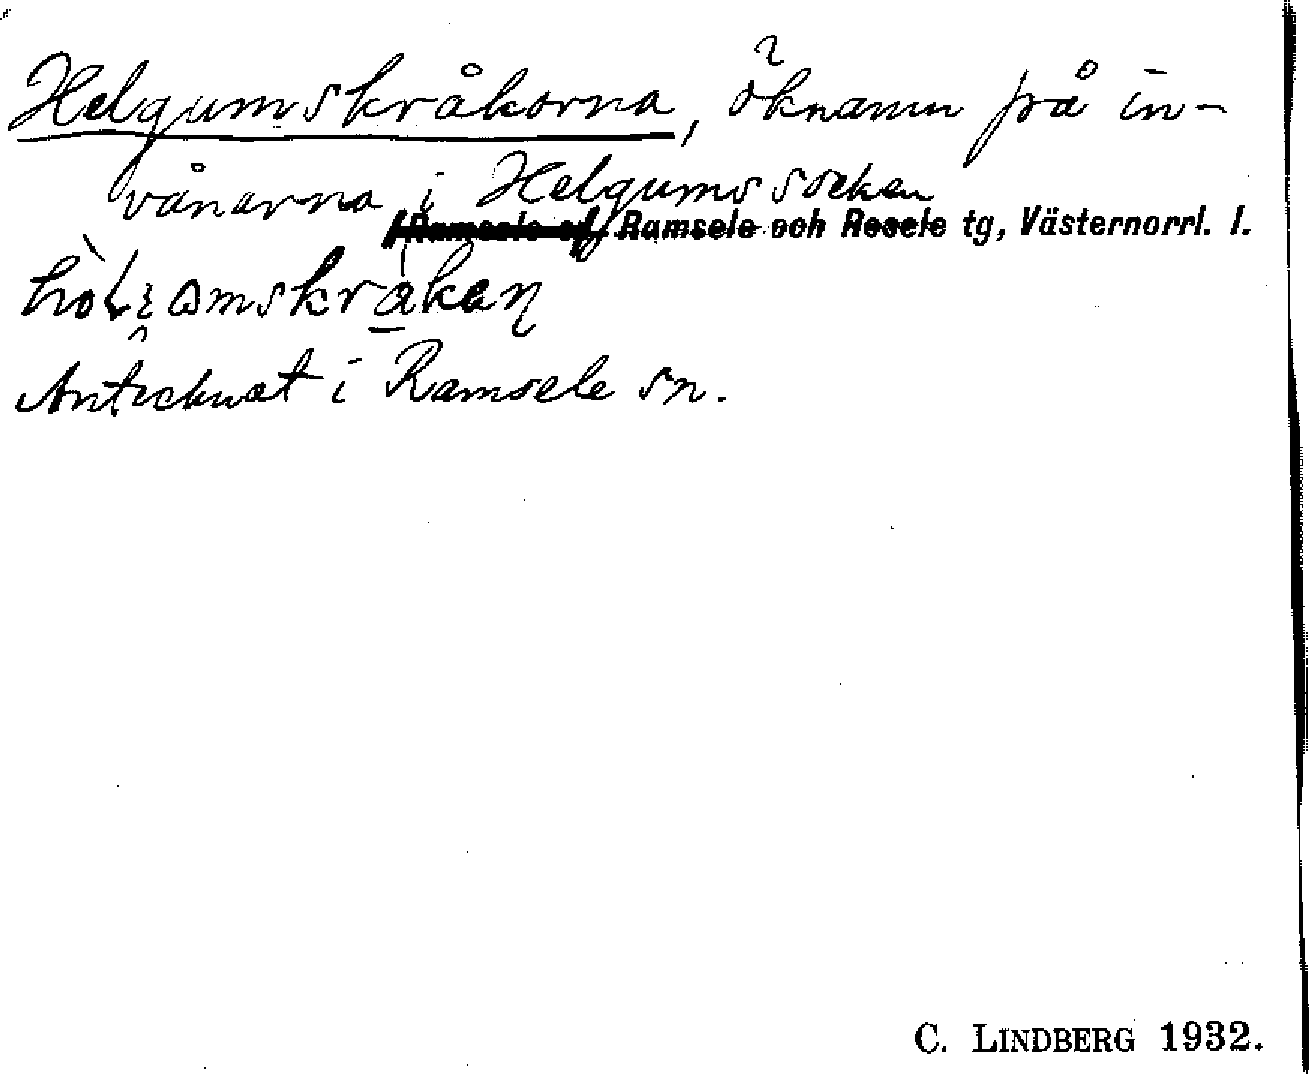 Helgumskråkorna, öknamn på in-
vånarna i Helgums socken
Ramsele och Resele tg, Västernorrl. l.
Antecknat i Ramsele sn.
C. LINDBERG 1932.